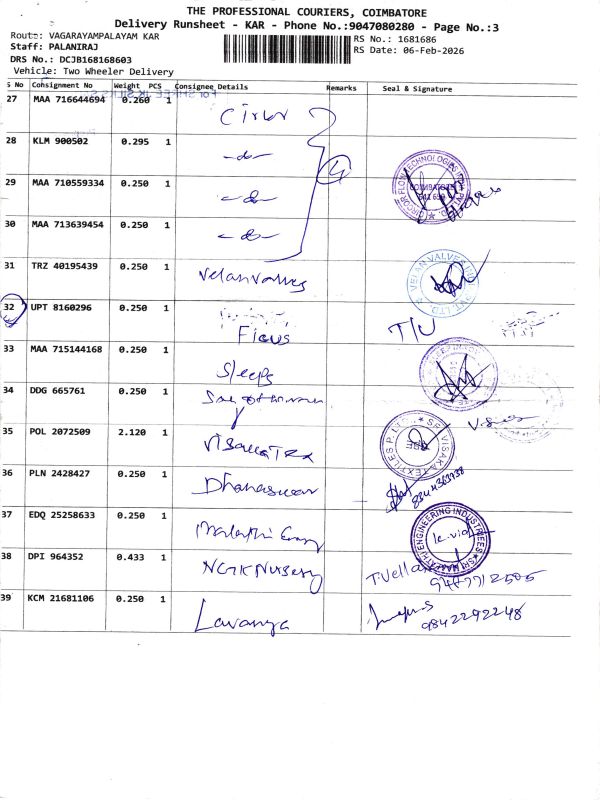 THE PROFESSIONAL COURIERS, COIMBATORE
Delivery Runsheet - KAR - Phone No.:9047080280 - Page No.:3
Route: VAGARAYAMPALAYAM KAR
RS No.: 1681686
Staff: PALANIRAJ
RS Date: 06-Feb-2026
DRS No.: DCJB168168603
Vehicle: Two Wheeler Delivery
S No Consignment No Weight PCS Consignee Details Remarks Seal & Signature
27 MAA 716644694 0.260 1
28 KLM 900502 0.295 1 -do-
4
29 MAA 710559334 0.250 1 -do-
30 MAA 713639454 0.250 1 -do-
31 TRZ 40195439 0.250 1 Velan Valves
32 UPT 8160296 0.250 1 Ficus T/U
33 MAA 715144168 0.250 1 Sleeps
34 DDG 665761 0.250 1
35 POL 2072509 2.120 1
36 PLN 2428427 0.250 1
37 EDQ 25258633 0.250 1
38 DPI 964352 0.433 1 NGTK Nursery
39 KCM 21681106 0.250 1 Lavanya 9842292248